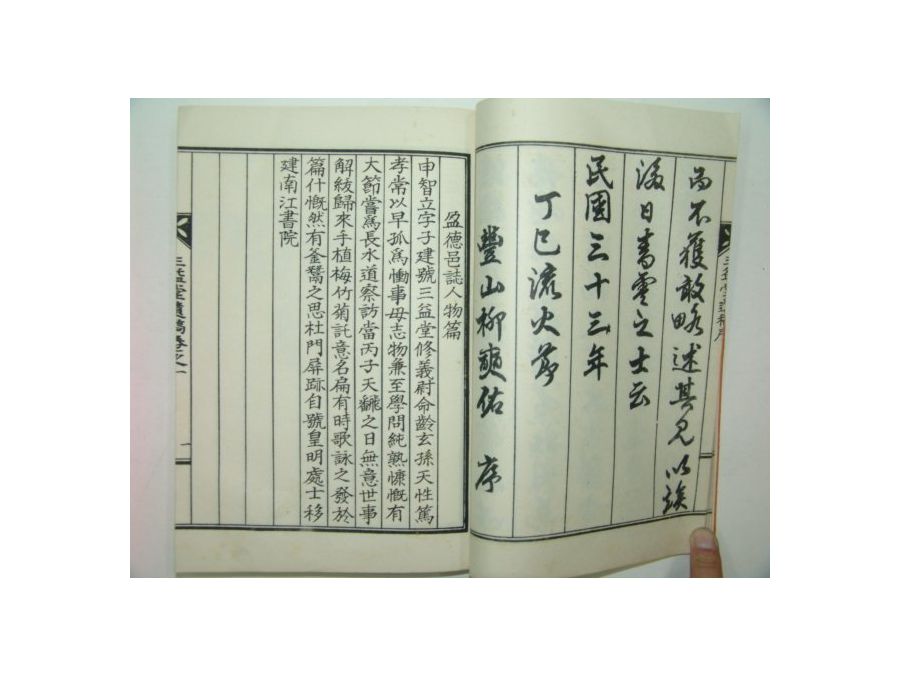 三益堂遺稿序
而不獲敢略述其見以竢
後日青雲之士云
民國三十三年
丁巳流火節
豐山柳奭佑 序
盈德邑誌人物篇
申智立字子建號三益堂修義尉命齡玄孫天性篤
孝常以早孤爲慟事母志物兼至學問純熟慷慨有
大節嘗爲長水道察訪當丙子天飜之日無意世事
解紱歸來手植梅竹菊託意名扁有時歌詠之發於
篇什慨然有釜鬵之思杜門屏跡自號皇明處士移
建南江書院
三益堂遺稿卷之一
一